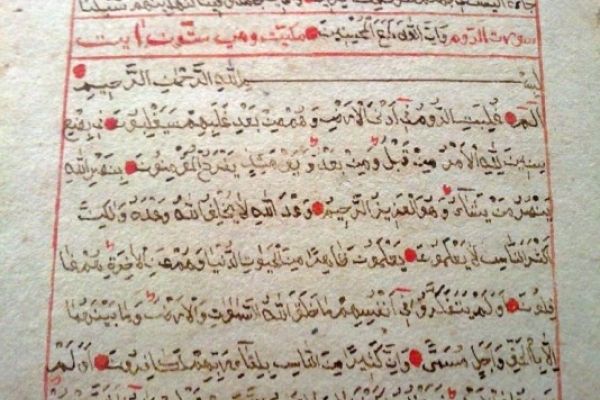 جاءه اليس في جهنم لنهدينهم سبلنا
سورة الروم وَإِنَّ اللّهَ لَمَعَ الْمُحْسِنِينَ مكية وهي ستون آية
بِسْمِ اللَّهِ الرَّحْمَنِ الرَّحِيمِ
الم غُلِبَتِ الرُّومُ فِي أَدْنَى الْأَرْضِ وَهُمْ مِنْ بَعْدِ غَلَبِهِمْ سَيَغْلِبُونَ فِي بِضْعِ
سِنِينَ لِلَّهِ الْأَمْرُ مِنْ قَبْلُ وَمِنْ بَعْدُ وَيَوْمَئِذٍ يَفْرَحُ الْمُؤْمِنُونَ بِنَصْرِ اللَّهِ
يَنْصُرُ مَنْ يَشَاءُ وَهُوَ الْعَزِيزُ الرَّحِيمُ وَعْدَ اللَّهِ لَا يُخْلِفُ اللَّهُ وَعْدَهُ وَلَكِنَّ
أَكْثَرَ النَّاسِ لَا يَعْلَمُونَ يَعْلَمُونَ ظَاهِرًا مِنَ الْحَيَوةِ الدُّنْيَا وَهُمْ عَنِ الْآخِرَةِ هُمْ غَا
فِلُونَ أَوَلَمْ يَتَفَكَّرُوا فِي أَنْفُسِهِمْ مَا خَلَقَ اللَّهُ السَّمَوَاتِ وَالْأَرْضَ وَمَا بَيْنَهُمَا
إِلَّا بِالْحَقِّ وَأَجَلٍ مُسَمًّى وَإِنَّ كَثِيرًا مِنَ النَّاسِ بِلِقَاءِ رَبِّهِمْ لَكَافِرُونَ أَوَلَمْ